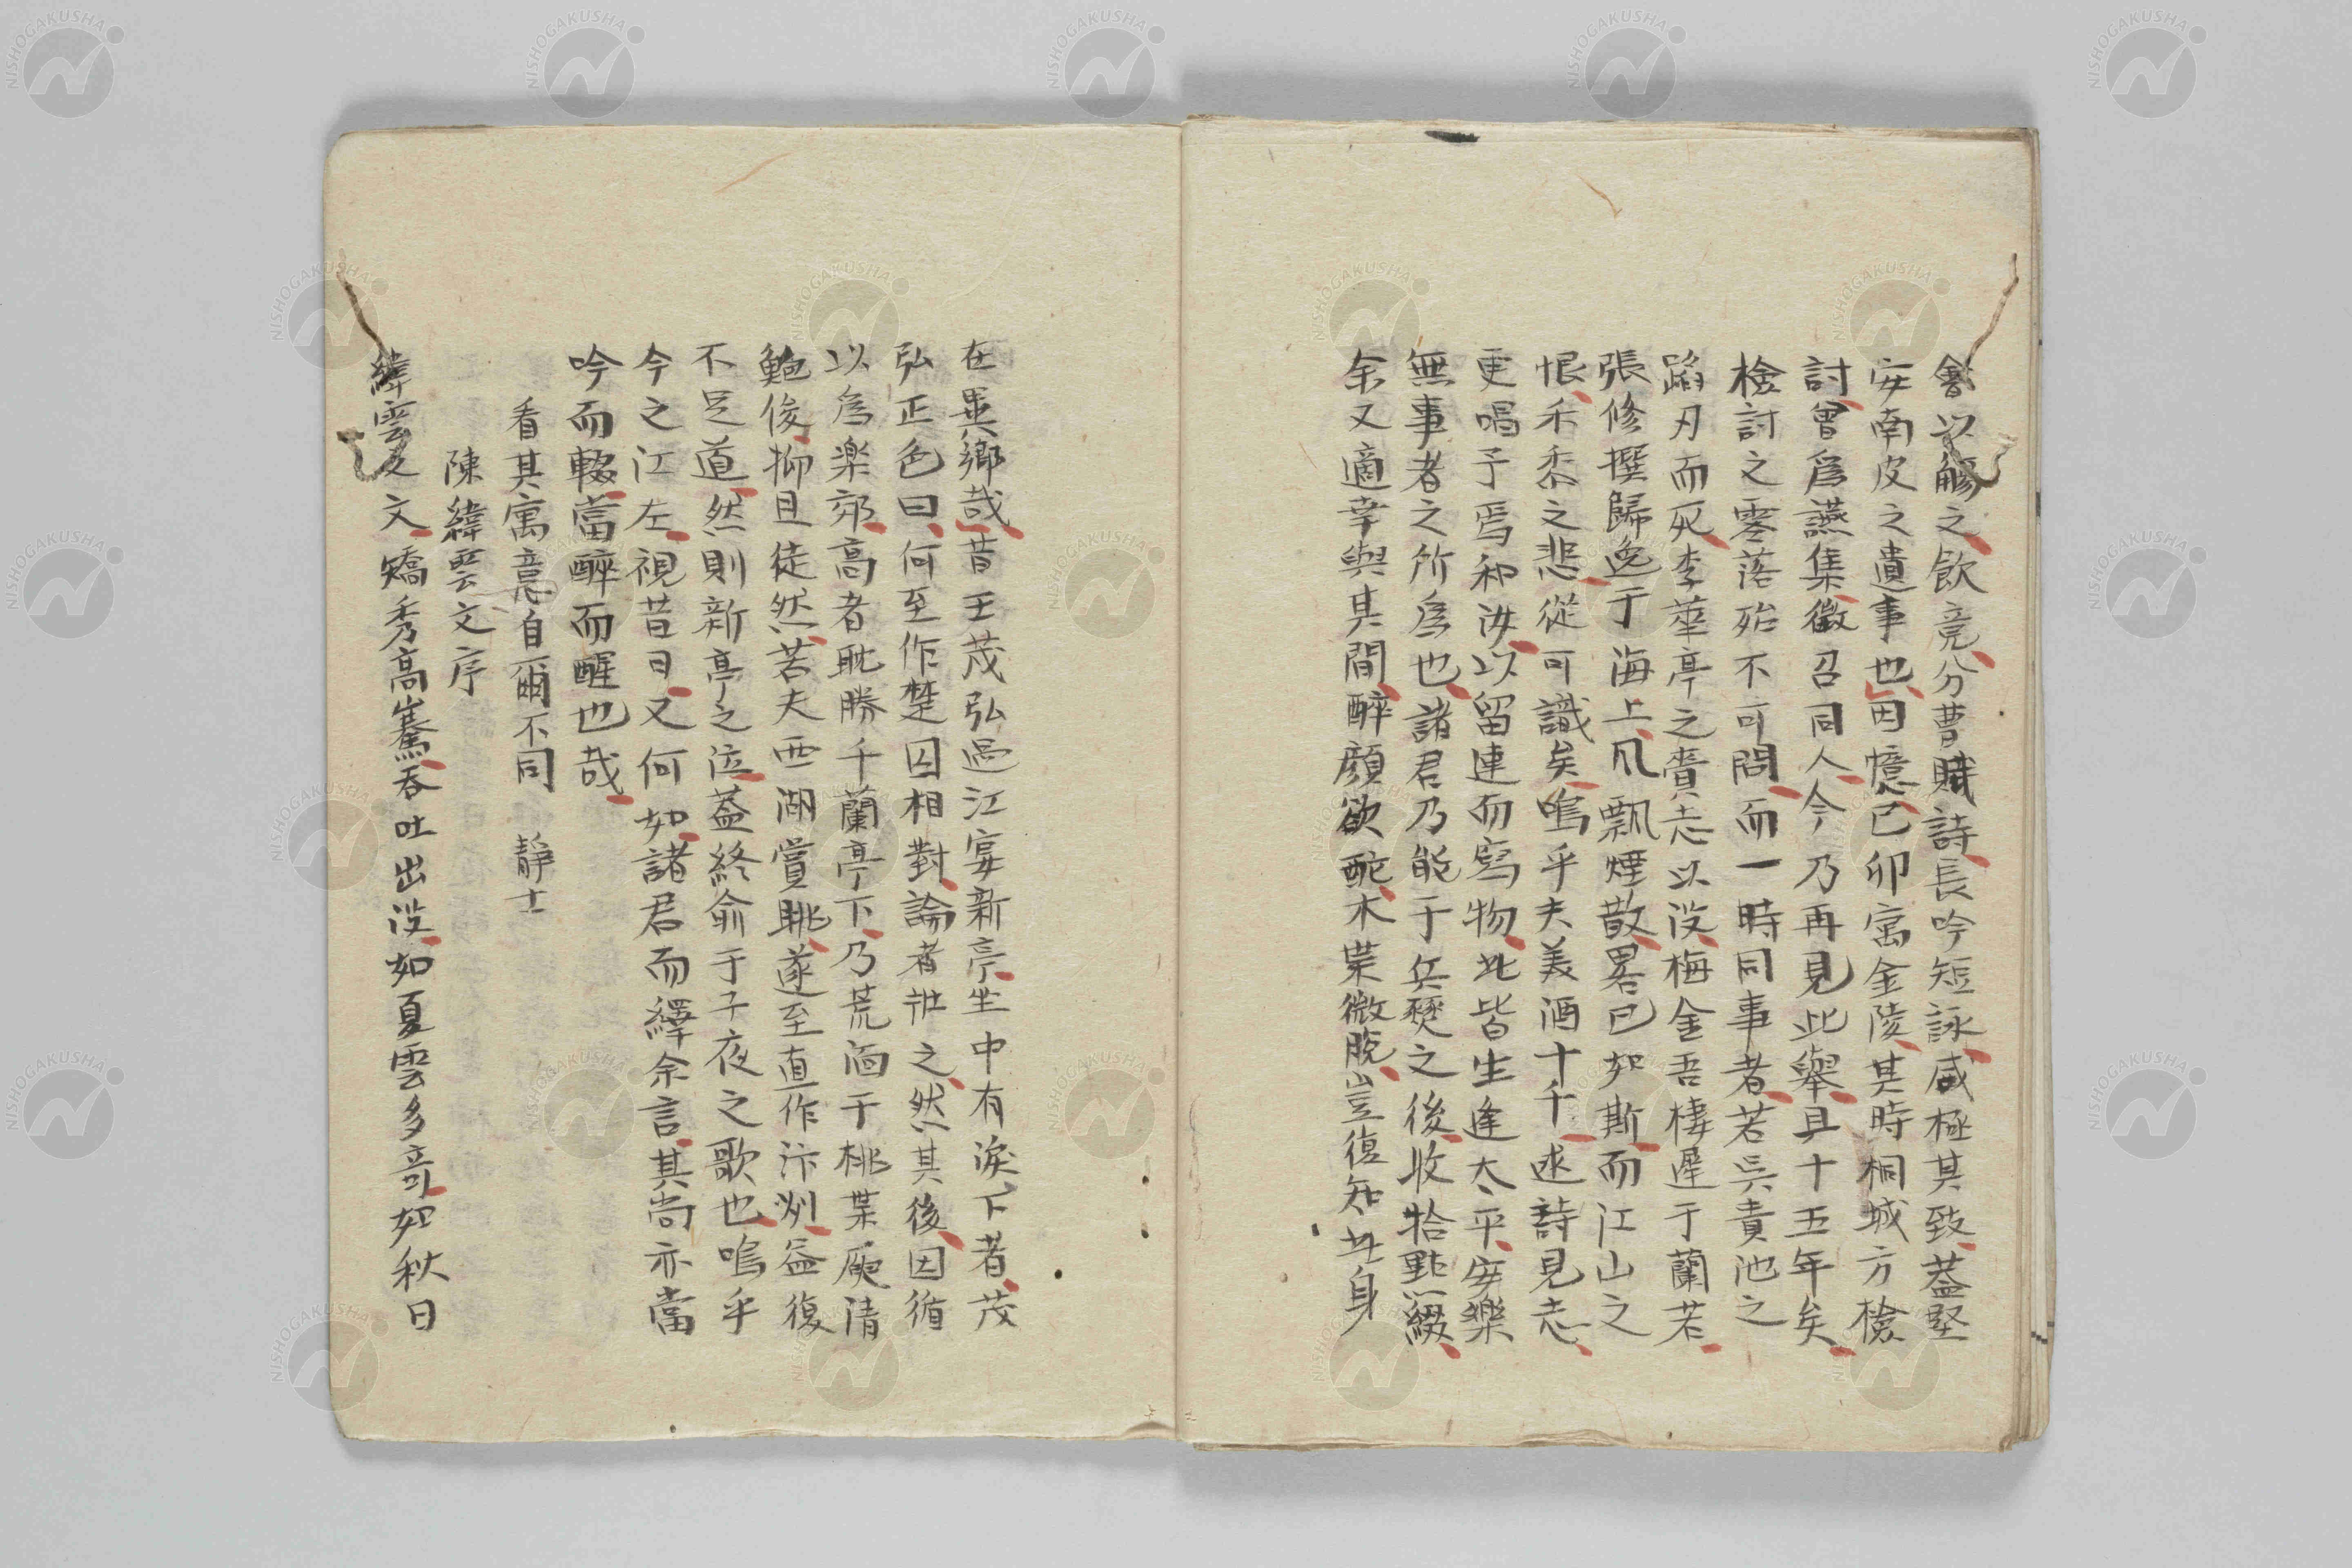 會以觴之飲竟分曹賦詩長吟短詠咸極其致蓋堅
安南皮之遺事也因憶己卯寓金陵其時桐城方檢
討曾爲讌集徵召同人今乃再見此舉且十五年矣
檢討之零落殆不可問而一時同事者若吳貴池之
蹈刃而死李華亭之賫志以沒梅金吾棲遲于蘭若
張修撰歸逸于海上風飄煙散畧已如斯而江山之
恨禾黍之悲從可識矣嗚乎夫美酒十千述詩見志
更唱予焉和汝以留連而寫物此皆生逢太平安樂
無事者之所爲也諸君乃能于兵燹之後收拾點綴
余又適幸與其間醉顔欲酡木葉微脫豈復知此身
在異鄉哉昔王茂弘過江宴新亭坐中有淚下者茂
弘正色曰何至作楚囚相對論者壯之然其後因循
以爲樂郊高者耽勝千蘭亭下乃荒湎于桃葉厥清
鮑俊抑且徒然若夫西湖賞眺遂至直作汴州益復
不足道然則新亭之泣蓋終俞于子夜之歌也嗚乎
今之江左視昔日又何如諸君而繹余言其尚亦當
吟而輟當醉而醒也哉
看其寓意自爾不同 靜士
陳緯雲文序
緯雲之文矯秀高騫吞吐出沒如夏雲多奇如秋日
NISHOGAKUSHA